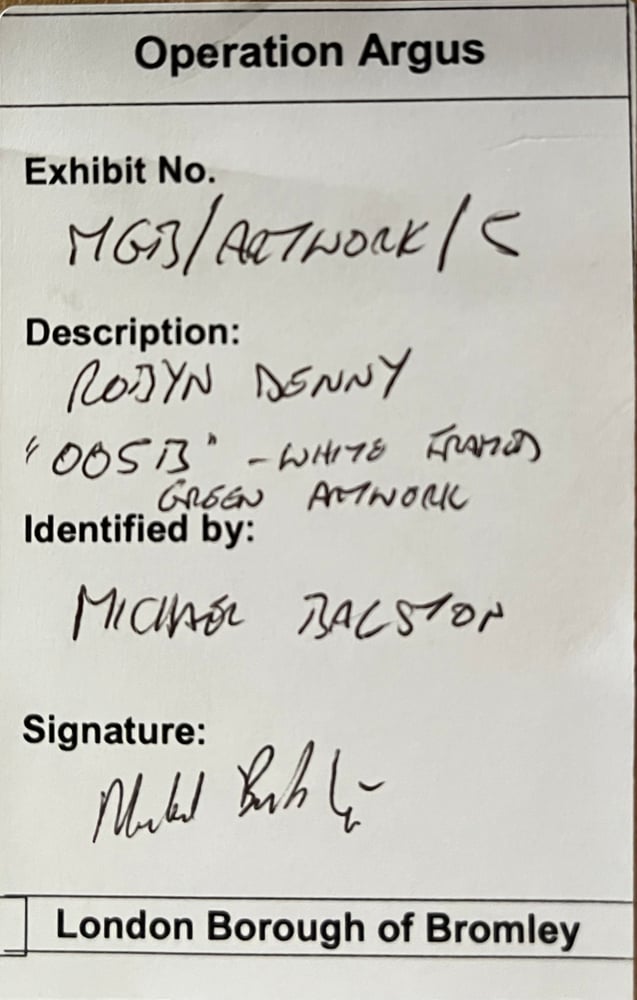 Operation Argus
Exhibit No.
MGB/ARTWORK/5
Description:
ROBYN DENNY
"005B" - WHITE FRAMED
GREEN ARTWORK
Identified by:
MICHAEL BALSTON
Signature:
London Borough of Bromley